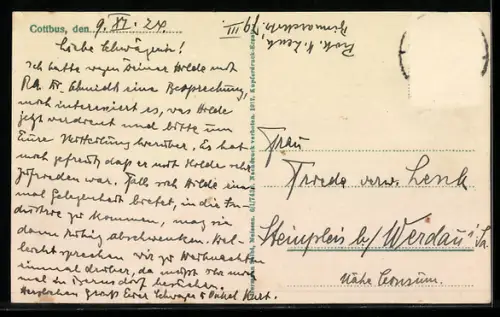 Cottbus, den 9. XI. 24.
Liebe Schwägerin!
Ich hatte wegen Deiner Hilde mit
RA. Dr. Schmidt eine Besprechung,
mich interessiert es, was Hilde
jetzt verdient und bitte um
Eure Mitteilung darüber. Es hat
mich gefreut daß er mit Hilde sehr
zufrieden war. Falls sich Hilde ein-
mal Gelegenheit bietet, in die In-
dustrie zu kommen, mag sie
dann ruhig abschwenken. Viel-
leicht sprechen wir zu Weihnachten
einmal drüber, da müßt Ihr mich
mal in Bernsdorf besuchen.
Herzlichen Gruß Euer Schwager & Onkel Kurt.
Bismarckstr. 79 III.
Frau
Frieda verw. Lenk
Steinpleis b/ Werdau i/Sa.
Nähe Consum.